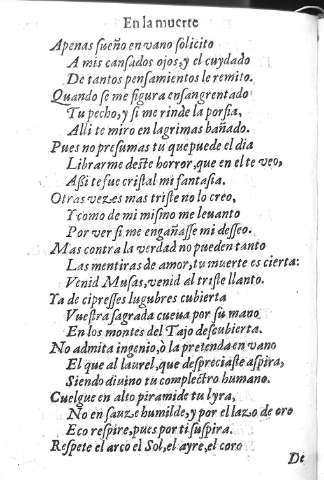 En la muerte
Apenas ſueño en vano ſolicito
A mis canſados ojos, y el cuydado
De tantos penſamientos le remito.
Quando ſe me figura enſangrentado
Tu pecho, y ſi me rinde la porfia,
Alli te miro en lagrimas bañado.
Pues no preſumas tu que puede el dia
Librarme deste horror, que en el te veo,
Aßi te fue criſtal mi fantaſia.
Otras vezes mas triſte no lo creo,
Y como de mi miſmo me leuanto
Por ver ſi me engañaſſe mi deſſeo.
Mas contra la verdad no pueden tanto
Las mentiras de amor, tu muerte es cierta:
Venid Muſas, venid al triſte llanto.
Ya de cipreſſes lugubres cubierta
Vueſtra ſagrada cueua por ſu mano
En los montes del Tajo deſcubierta.
No admita ingenio, ò la pretenda en vano
El que al laurel, que deſpreciaſte aſpira,
Siendo diuino tu complectro humano.
Cuelgue en alto piramide tu lyra,
No en ſauze humilde, y por el lazo de oro
Eco reſpire, pues por ti ſuſpira.
Reſpete el arco el Sol, el ayre, el coro
De